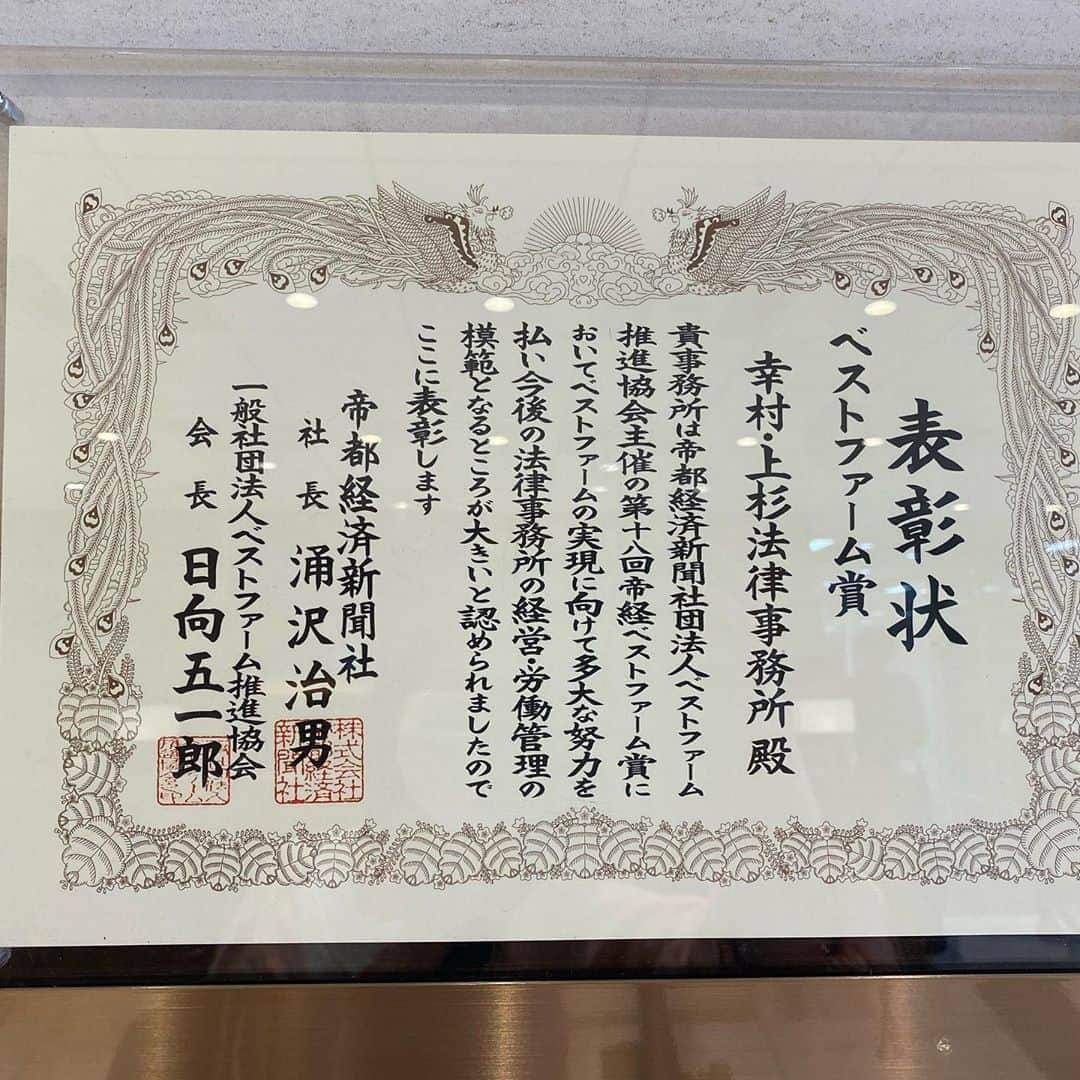 表彰状
ベストファーム賞
幸村・上杉法律事務所 殿
貴事務所は帝都経済新聞社団法人ベストファーム
推進協会主催の第十八回帝経ベストファーム賞に
おいてベストファームの実現に向けて多大な努力を
払い今後の法律事務所の経営・労働管理の
模範となるところが大きいと認められましたので
ここに表彰します
帝都経済新聞社
社長 涌沢治男
株式会社
新聞社
一般社団法人ベストファーム推進協会
会長 日向五一郎